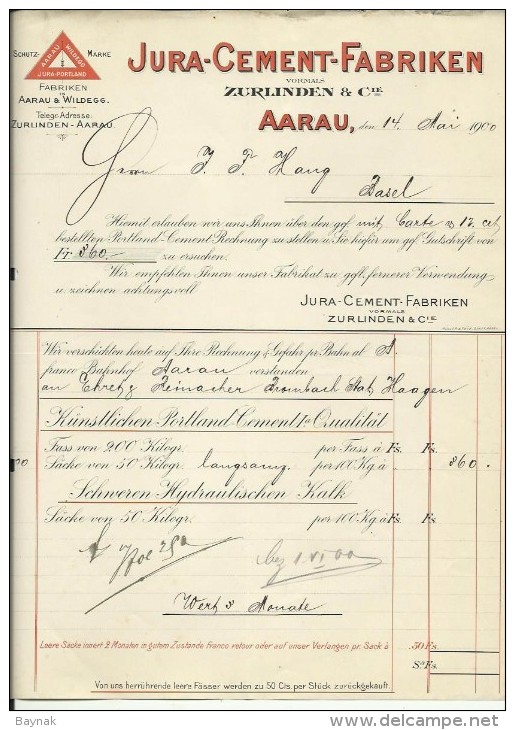 SCHUTZ- MARKE
AARAU WILDEGG
JURA-PORTLAND
FABRIKEN
IN
AARAU & WILDEGG.
Telegr.-Adresse:
ZURLINDEN-AARAU.
JURA-CEMENT-FABRIKEN
VORMALS
ZURLINDEN & CIE.
AARAU, den 14. Mai 1900
Herrn J. F. Haug
Basel
Hiemit erlauben wir uns Ihnen über den gefl. mit Carte v. 12. ct.
bestellten Portland-Cement Rechnung zu stellen u. Sie hiefür um gefl. Gutschrift von
Fr. 360.— zu ersuchen.
Wir empfehlen Ihnen unser Fabrikat zu gefl. fernerer Verwendung
u. zeichnen achtungsvoll
JURA-CEMENT-FABRIKEN
VORMALS
ZURLINDEN & CIE.
Wir verschickten heute auf Ihre Rechnung & Gefahr pr. Bahn al
franco Bahnhof Aarau verstanden
an Reinacher Brombach Stat. Haagen
Künstlichen Portland-Cement Ia Qualität
Fass von 200 Kilogr. per Fass à Fs. Fs.
Säcke von 50 Kilogr. langsamz. per 100 Kg. à „ „ 360.
Schweren Hydraulischen Kalk
Säcke von 50 Kilogr. per 100 Kg. à Fs. Fs.
Wert 3 Monate
Leere Säcke innert 2 Monaten in gutem Zustande franco retour oder auf unser Verlangen pr. Sack à .50 Fs.
Sa. Fs.
Von uns herrührende leere Fässer werden zu 50 Cts. per Stück zurückgekauft.
Baynak
delcampe.net